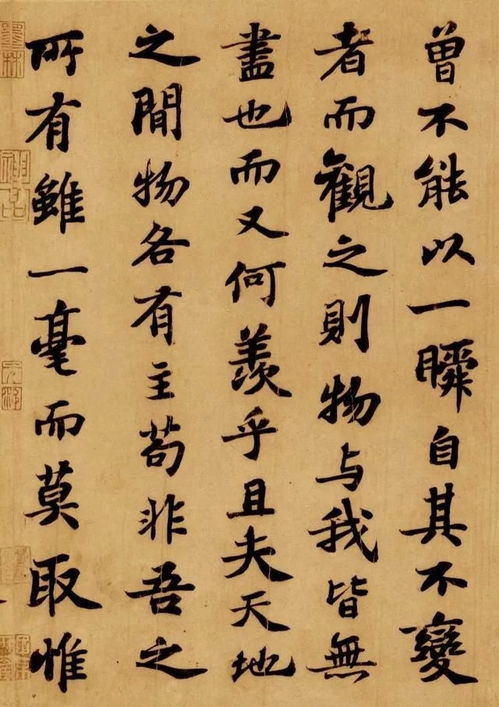 曾不能以一瞬自其不變
者而觀之則物与我皆無
盡也而又何羨乎且夫天地
之間物各有主苟非吾之
所有雖一毫而莫取惟